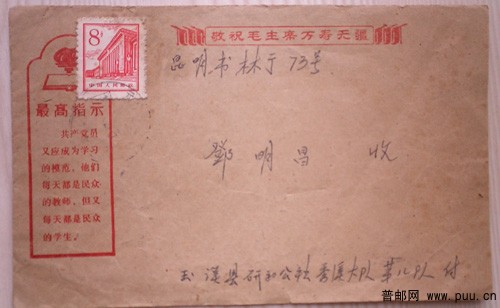 敬祝毛主席万寿无疆
8分
中国人民邮政
昆明书林于73号
最高指示
共产党员
又应成为学习
的模范，他们
每天都是民众
的教师，但又
每天都是民众
的学生。
鄧明昌 收
玉溪县研和公社 大队第八队 付
普邮网 www.puu.cn